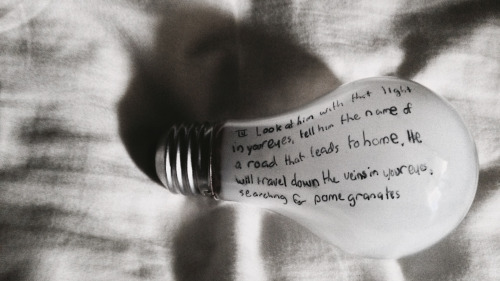 IV Look at him with that light
in your eyes, tell him the name of
a road that leads to home. He
will travel down the veins in your eyes,
searching for pomegranates